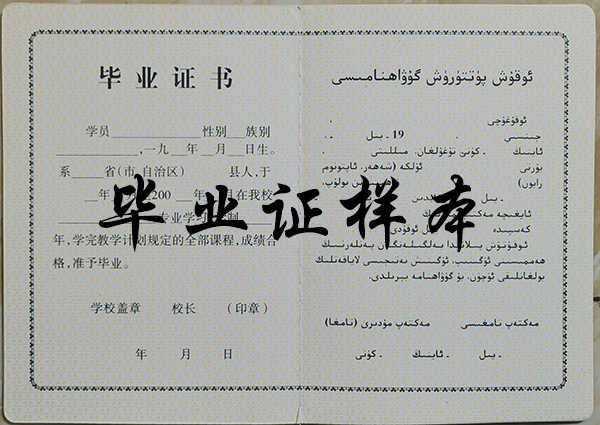 毕业证书
学员 性别 族别
,一九 年 月 日生。
系 省(市、自治区) 县人,于
年 200 年 月在我校
专业学习 制
年,学完教学计划规定的全部课程,成绩合
格,准予毕业。
学校盖章 校长 (印章)
年 月 日
毕业证样本
ئوقۇش پۈتتۈرۈش گۇۋاھنامىسى
ئوقۇغۇچى .
جىنسى . 19 - يىل - .
ئاينىڭ - كۈنى تۇغۇلغان. مىللىتى .
يۈرتى ئۆلكە (شەھەر، ئاپتونوم
رايون) بولۇپ،
- يىل
ئايغىچە مەكتەپ
كەسپىدە يىل ئوقۇدى
ئوقۇتۇش پىلانىدا بەلگىلەنگەن پەنلەرنىڭ
ھەممىسىنى ئۆگىنىپ، ئۆگىنىش نەتىجىسى لاياقەتلىك
بولغانلىقى ئۈچۈن، بۇ گۇۋاھنامە بېرىلدى.
مەكتەپ تامغىسى مەكتەپ مۇدىرى (تامغا)
- يىل - ئاينىڭ - كۈنى